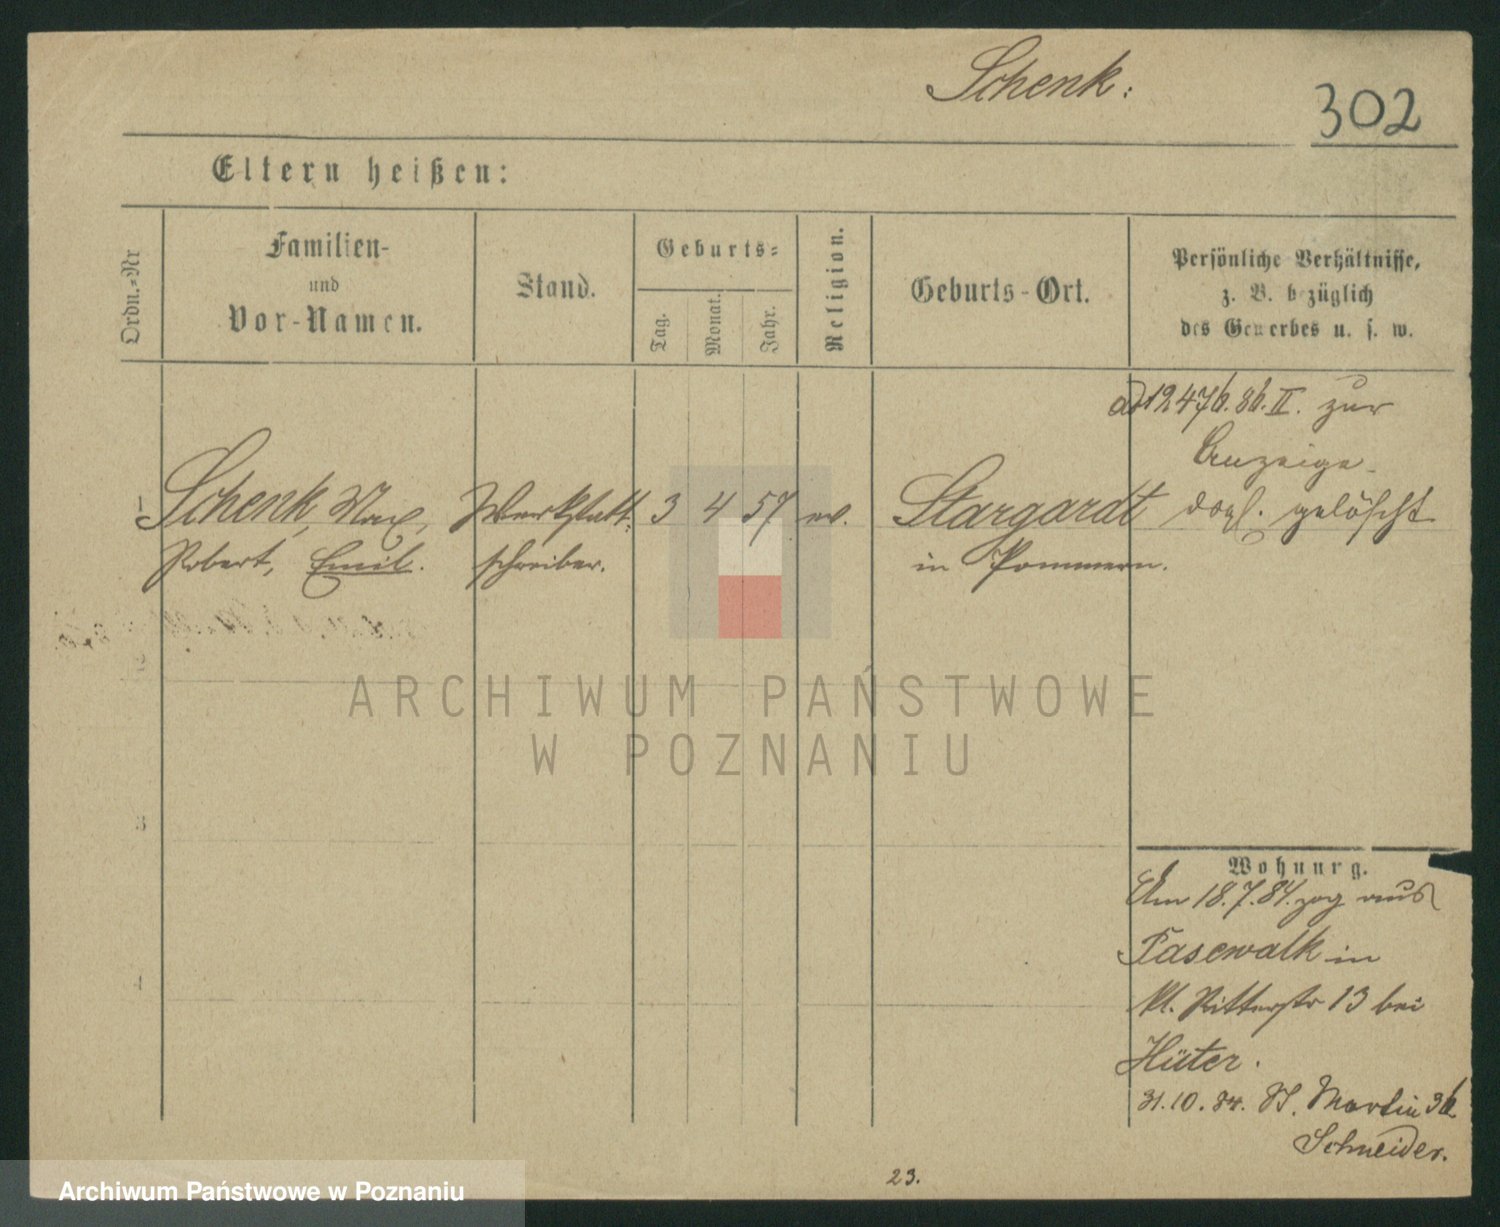 Schenk:
302
Eltern heißen:
Ordn.=Nr
Familien-
und
Vor-Namen.
Stand.
Geburts=
Tag.
Monat.
Jahr.
Religion.
Geburts-Ort.
Persönliche Verhältnisse,
z. B. bezüglich
des Gewerbes u. s. w.
ad 12476.86.II. zur
Anzeige
1 Schenk, Max, Werkstatt= 3 4 57 ev. Stargardt gelöscht
Robert, Emil. schreiber. in Pommern.
2
ARCHIWUM PAŃSTWOWE
W POZNANIU
3
Wohnung.
Am 18.7.84. zog aus
4 Pasewalk in
Kl. Ritterstr 13 bei
Hüter.
31.10.84. St. Martin 36
Schneider.
23.
Archiwum Państwowe w Poznaniu